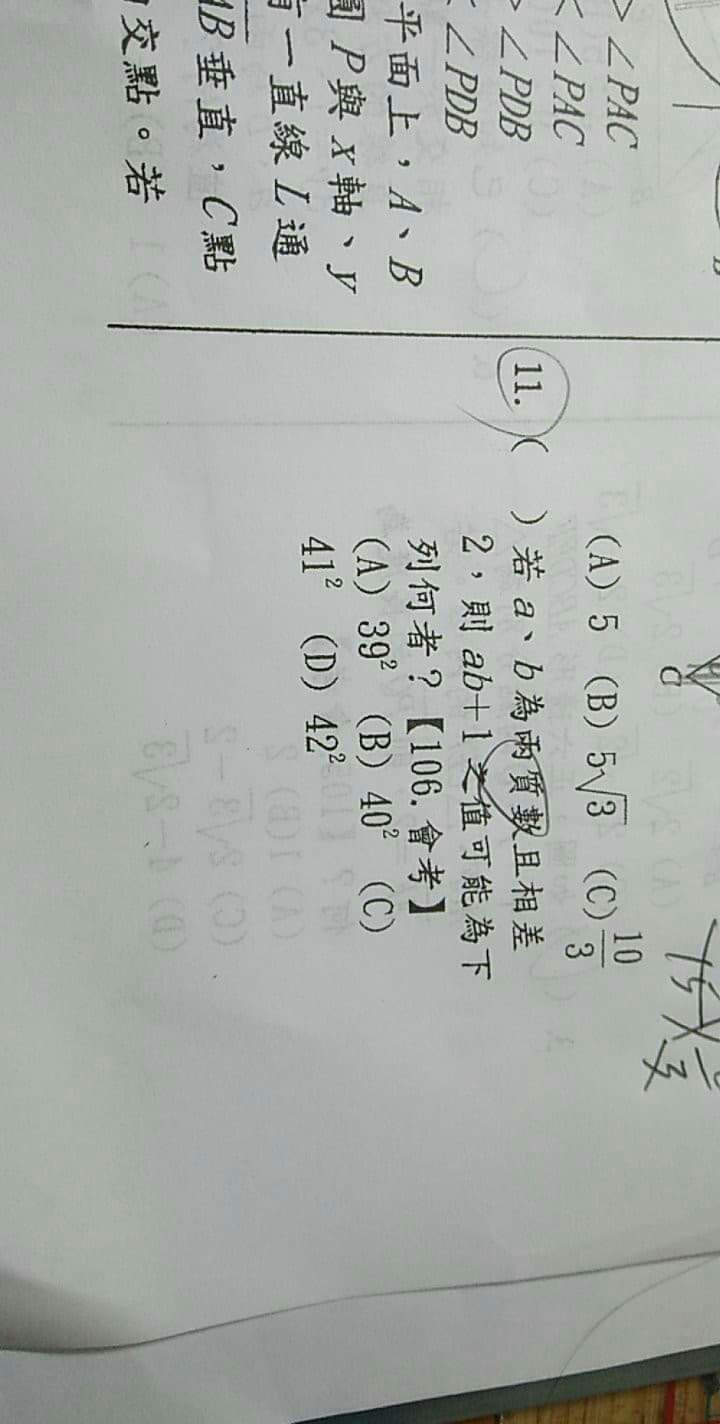 > ∠PAC
< ∠PAC
> ∠PDB
∠PDB
平面上，A、B
圓 P 與 x 軸、y
有一直線 L 通
AB 垂直，C 點
交點。若
(A) 5 (B) 5√3 (C) 10/3
11. ( ) 若 a、b 為兩質數且相差
2，則 ab+1 之值可能為下
列何者？【106.會考】
(A) 39² (B) 40² (C)
41² (D) 42²
C